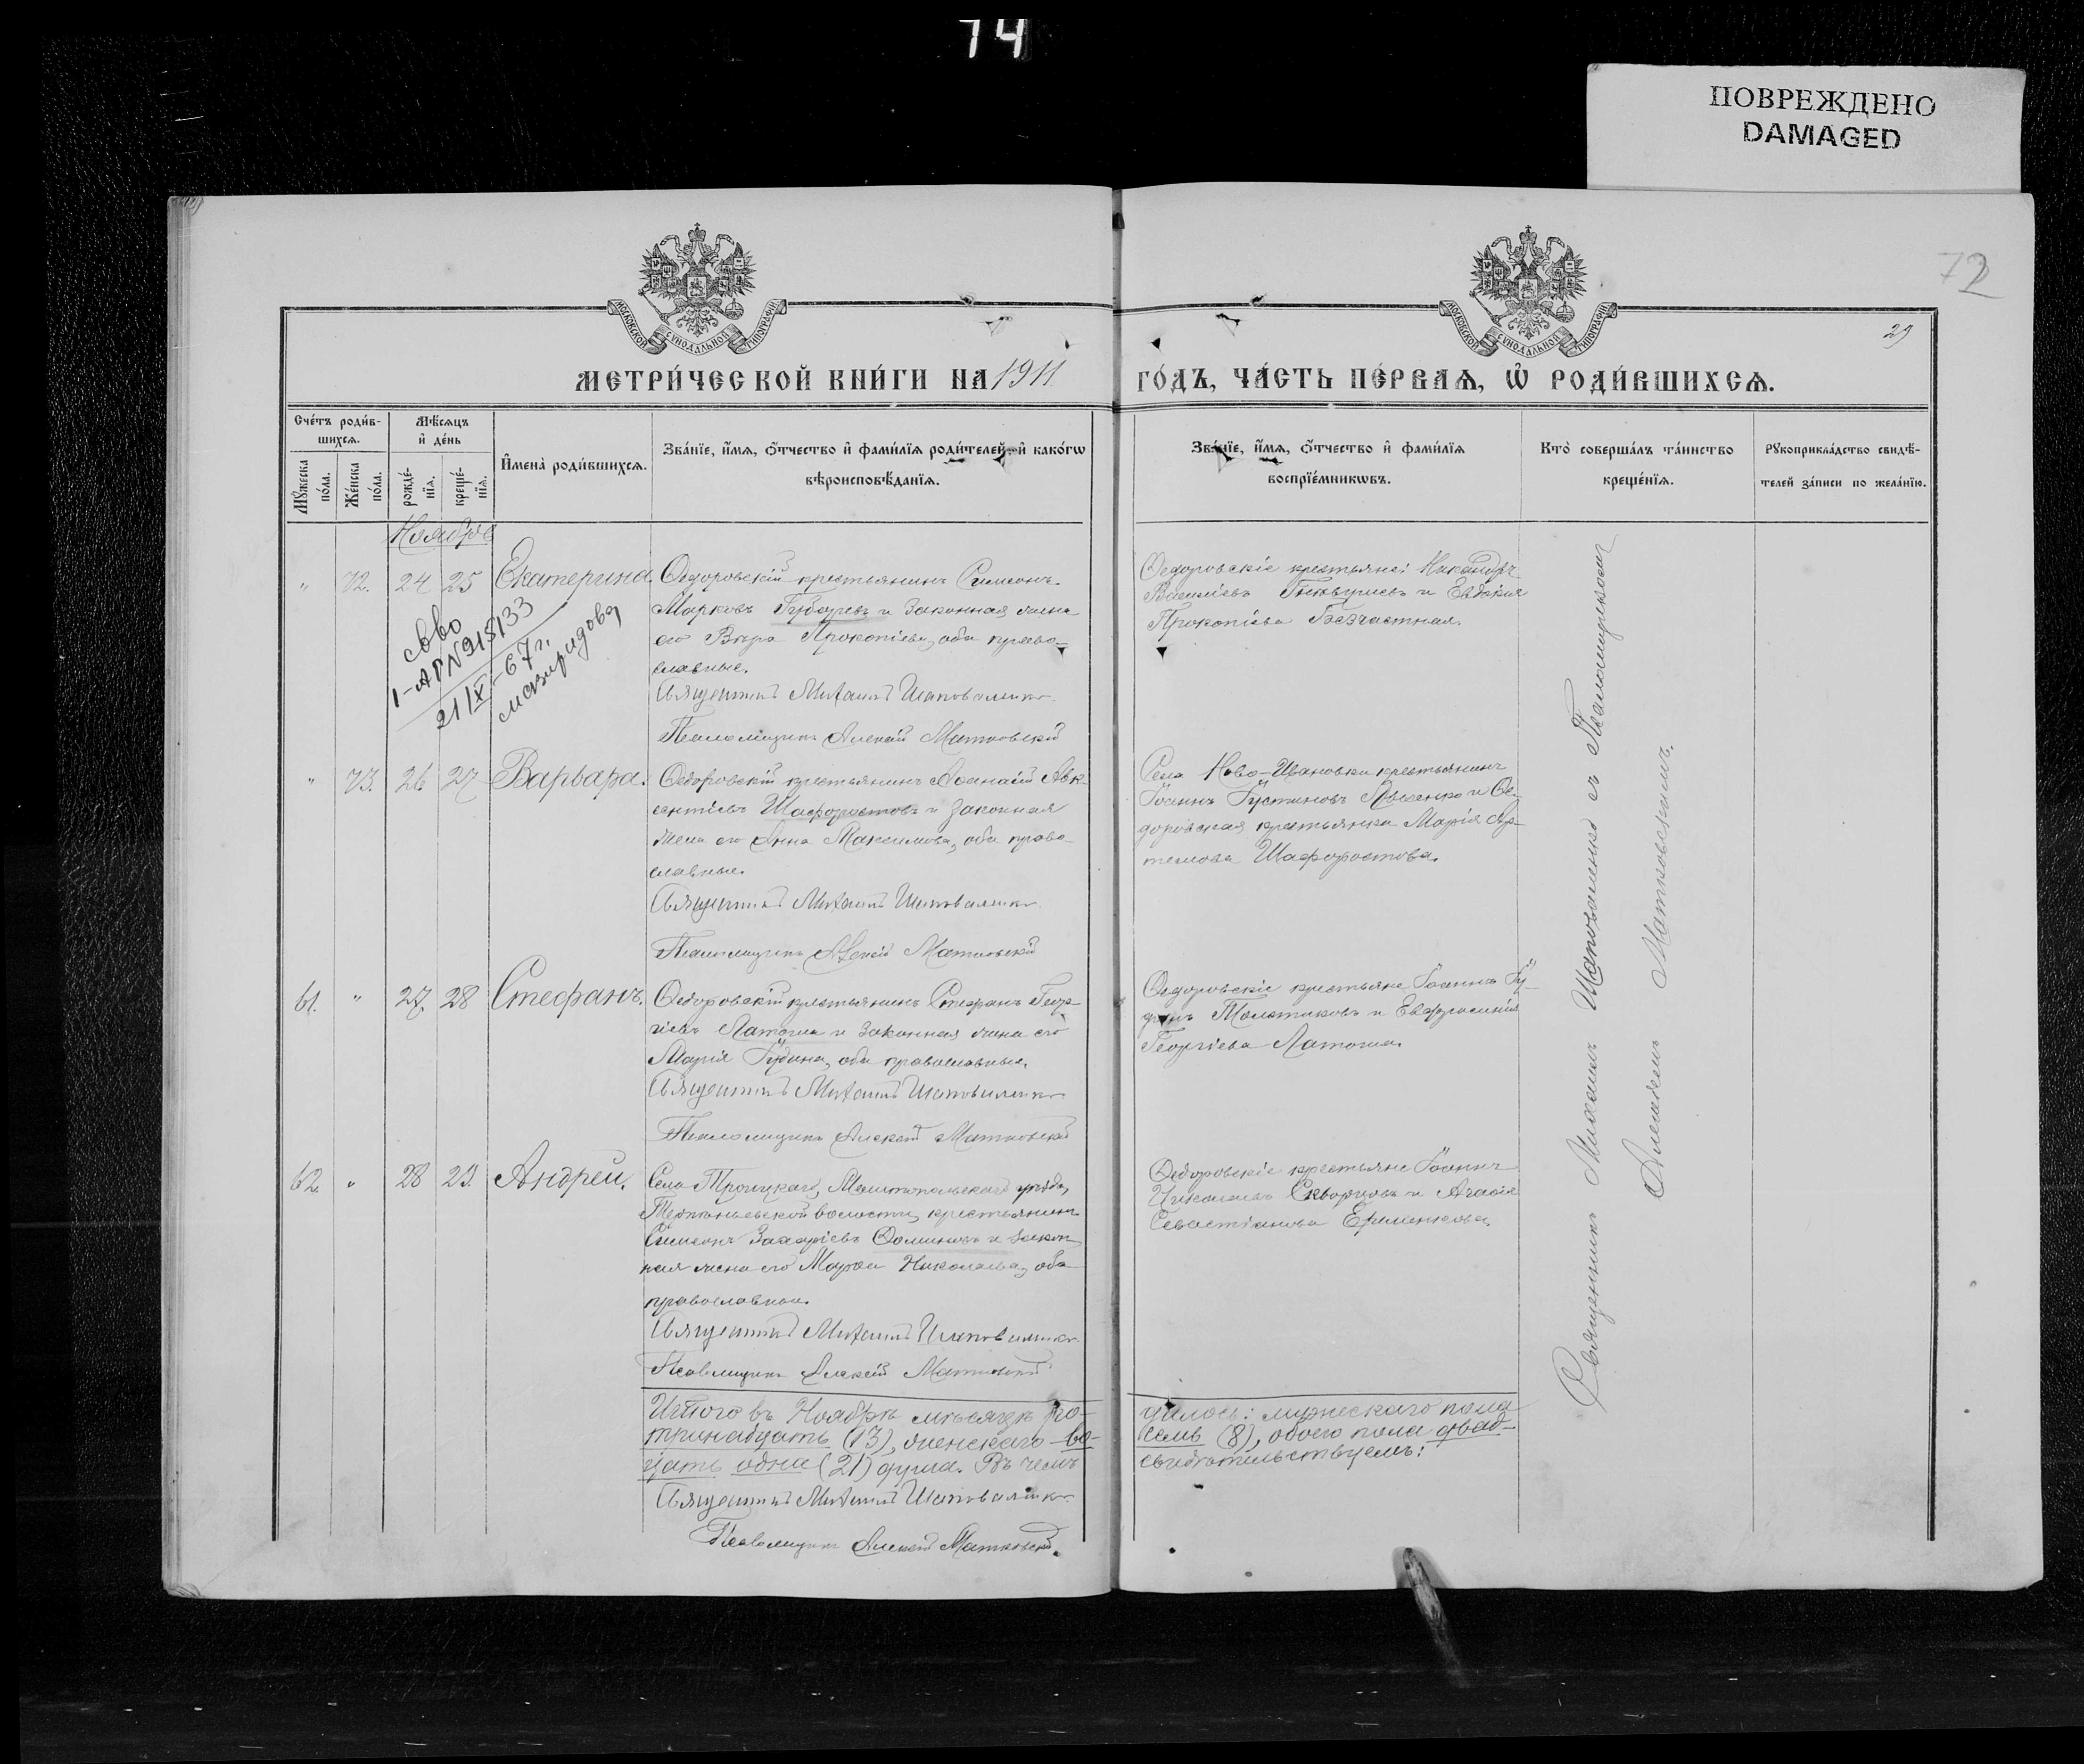 74
ПОВРЕЖДЕНО
DAMAGED
72
29
МОСКОВСКОЙ СѴНОДАЛЬНОЙ ТИПОГРАФІИ
МОСКОВСКОЙ СѴНОДАЛЬНОЙ ТИПОГРАФІИ
МЕТРИ́ЧЕСКОЙ КНИ́ГИ НА 1911
ГО́ДЪ, ЧА́СТЬ ПЕ́РВАѦ, Ѡ҆ РОДИ́ВШИХСѦ.
Сче́тъ роди́в-
шихсѧ.
Мѣ́сѧцъ
и҆ де́нь
Мꙋ́жеска по́ла.
Же́нска по́ла.
рожде́-нїѧ.
креще́-нїѧ.
И҆мена̀ роди́вшихсѧ.
Зва́нїе, и҆́мѧ, ѻ҆́тчество и҆ фами́лїѧ роди́телей, и҆ како́гѡ
вѣроисповѣ́данїѧ.
Зва́нїе, и҆́мѧ, ѻ҆́тчество и҆ фами́лїѧ
воспрїе́мникѡвъ.
Кто̀ соверша́лъ та́инство
креще́нїѧ.
Рꙋкоприкла́дство свидѣ́-
телей за́писи по жела́нїю.
Ноябрь
" 72. 24 25 Екатерина. Ѳедоровскій крестьянинъ Симеонъ
Марковъ и законная жена
его Вѣра Прокопіева, оба право-
славные.
Священникъ Михаилъ Шаповаленко
Псаломщикъ Алексій Матковскій
Ѳедоровскіе крестьяне: Никандръ
Василіевъ и Евдокія
Прокопіева Безчастная.
сво
1-АП N 918133
21/IX-67 г.
" 73. 26 27 Варвара. Ѳедоровскій крестьянинъ Аѳанасій Авк-
сентіевъ Шафоростовъ и законная
жена его Анна Максимова, оба право-
славные.
Священникъ Михаилъ Шаповаленко
Псаломщикъ Алексій Матковскій
Села Ново-Ивановки крестьянинъ
Іоаннъ Іустиновъ и Ѳе-
доровская крестьянка Марія Ар-
темова Шафоростова.
61. " 27 28 Стефанъ. Ѳедоровскій крестьянинъ Стефанъ Геор-
гіевъ Латоша и законная жена его
Марія Іудина, оба православные.
Священникъ Михаилъ Шаповаленко
Псаломщикъ Алексій Матковскій
Ѳедоровскіе крестьяне Іоаннъ Іу-
динъ Толстиковъ и Евфросинія
Георгіева Латоша.
62. " 28 29 Андрей. Села Троицкаго, Мелитопольскаго уѣзда,
волости, крестьянинъ
Симеонъ Захаріевъ Ѳоминовъ и закон-
ная жена его Марѳа Николаева, оба
православные.
Священникъ Михаилъ Шаповаленко
Псаломщикъ Алексій Матковскій
Ѳедоровскіе крестьяне Іоаннъ
Николаевъ Скворцовъ и Агаѳія
Севастіанова Ерменкова.
Священникъ Михаилъ Шаповаленко съ Псаломщикомъ
Алексѣемъ Матковскимъ.
Итого въ Ноябрѣ мѣсяцѣ ро-
дилось: мужескаго пола
тринадцать (13), женскаго во-
семь (8), обоего пола двад-
цать одна (21) душа. Въ чемъ
свидѣтельствуемъ:
Священникъ Михаилъ Шаповаленко
Псаломщикъ Алексій Матковскій.